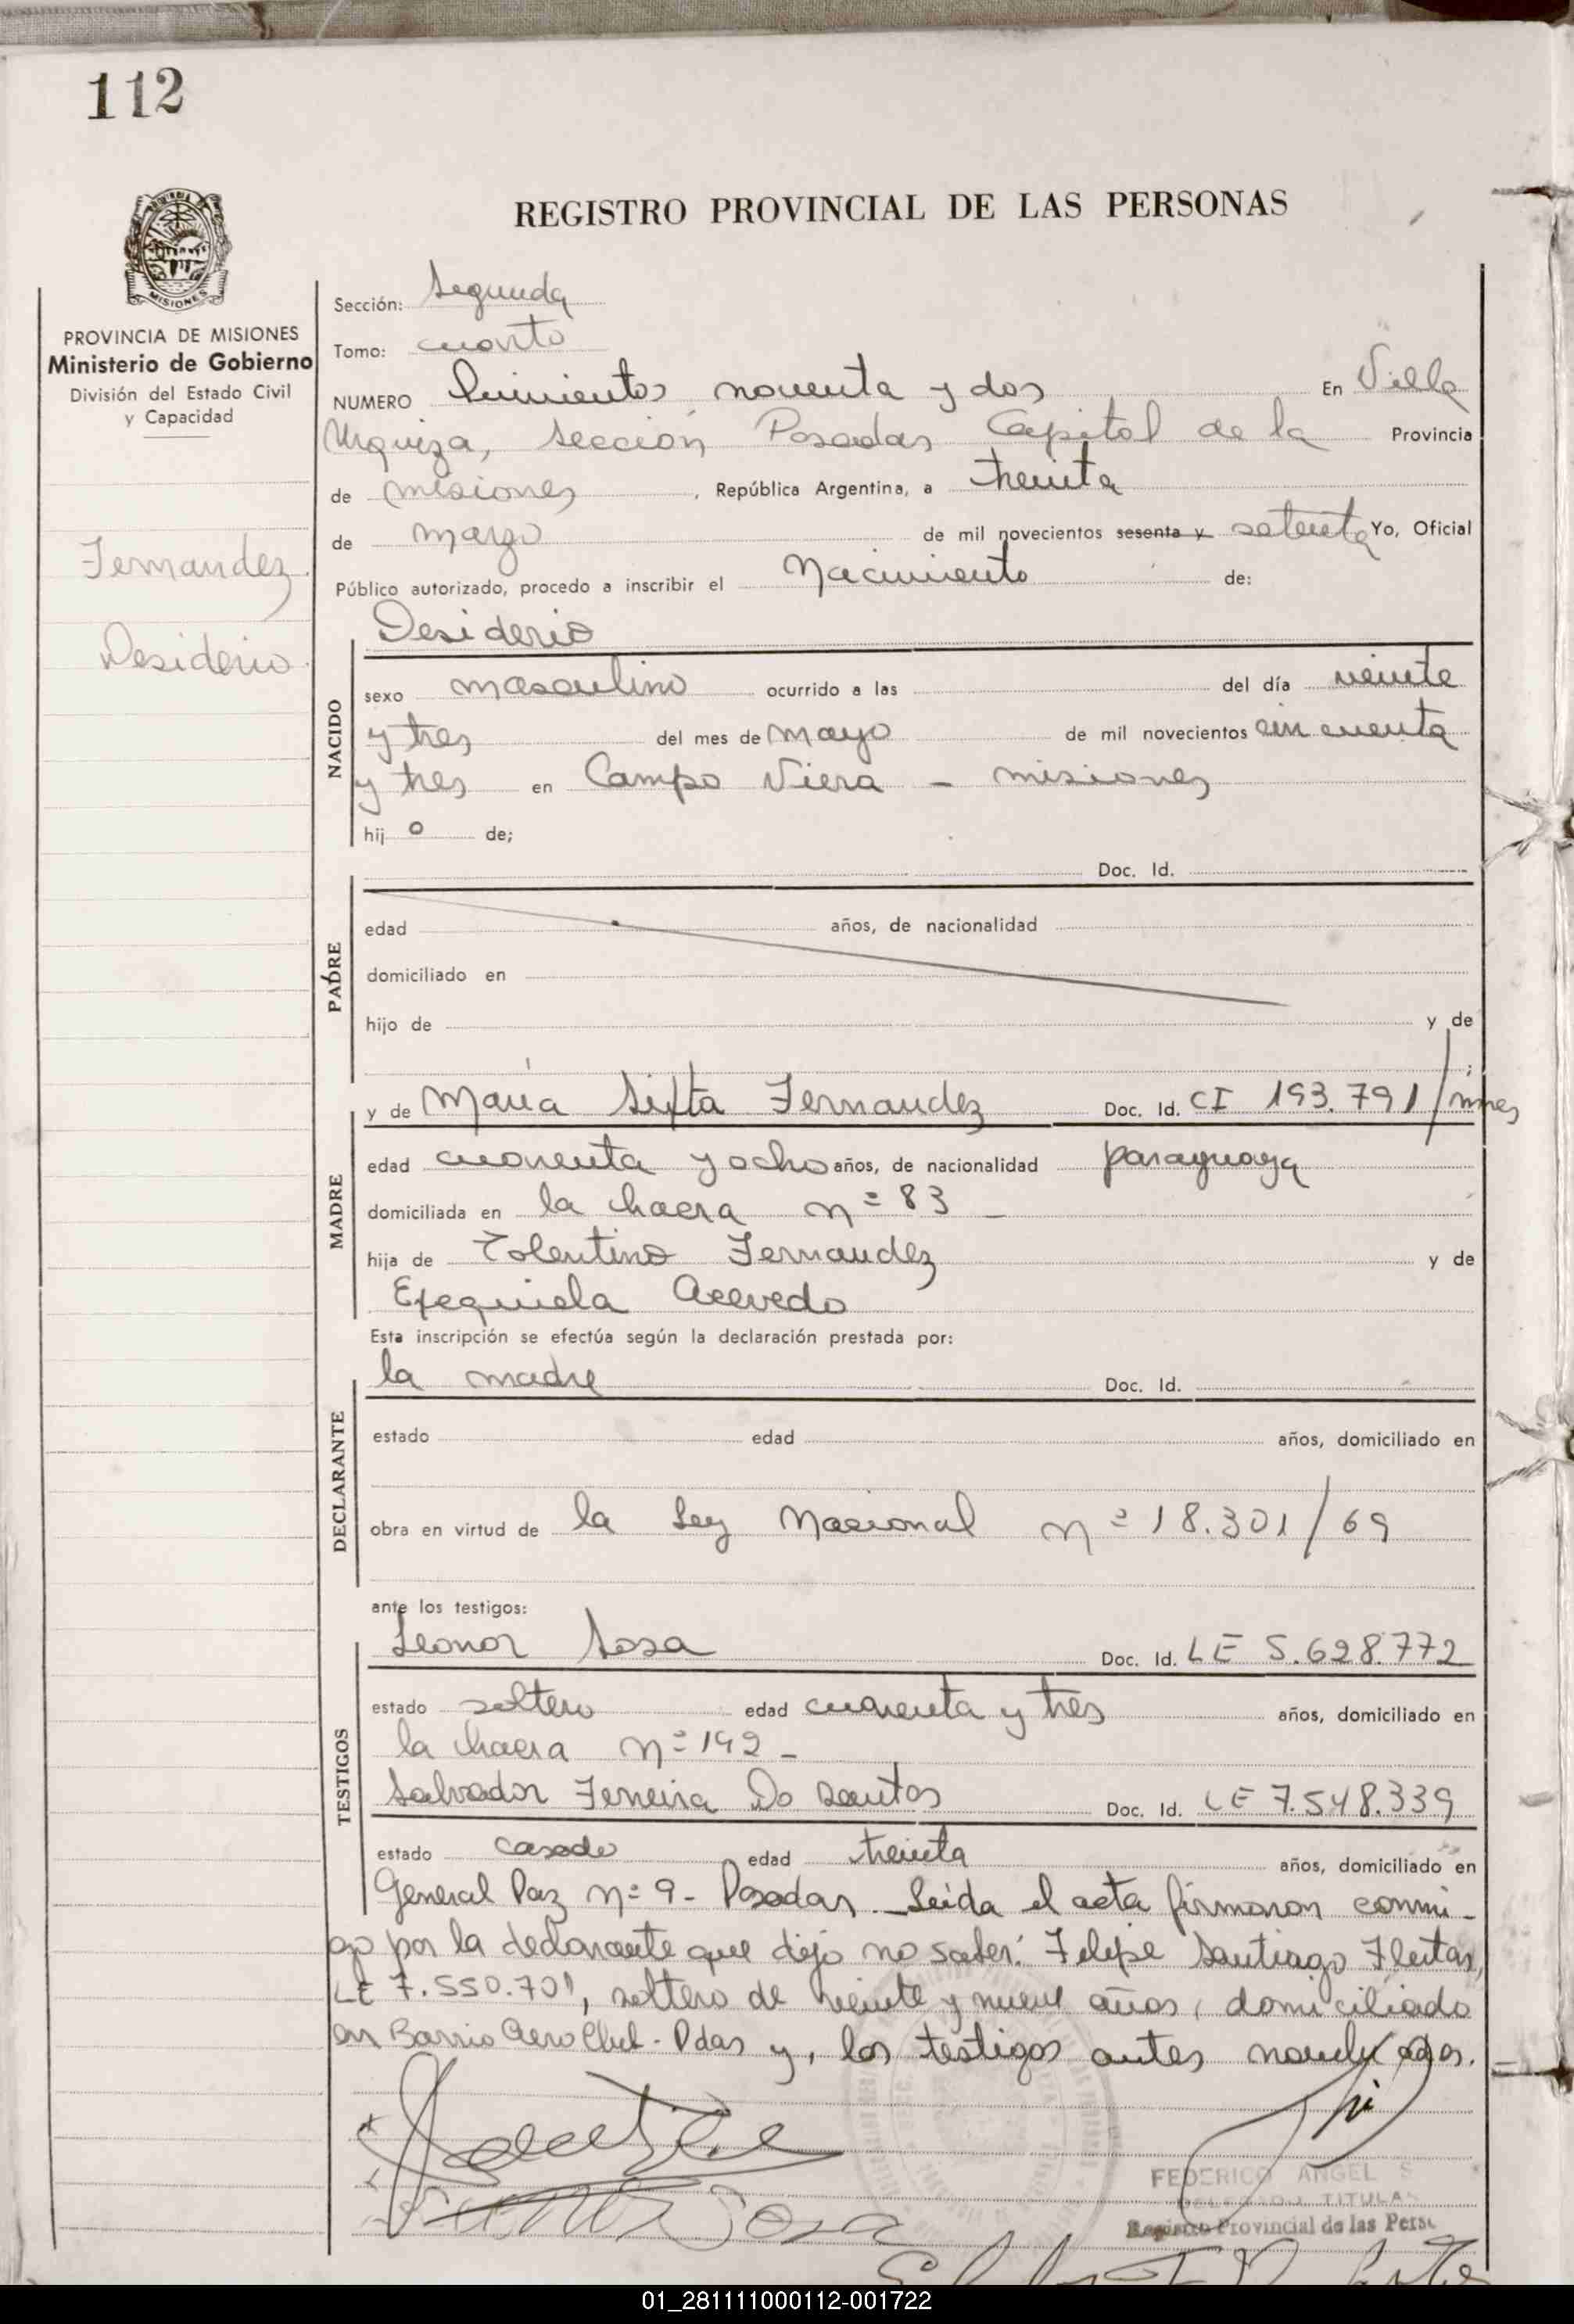 112
REGISTRO PROVINCIAL DE LAS PERSONAS
MISIONES
PROVINCIA DE MISIONES
Ministerio de Gobierno
División del Estado Civil
y Capacidad
Fernandez
Desiderio
Sección: Segunda
Tomo: cuarto
NUMERO Quinientos noventa y dos En Villa
Urquiza, Sección Posadas Capital de la Provincia
de misiones, República Argentina, a treinta
de marzo de mil novecientos sesenta y setenta Yo, Oficial
Público autorizado, procedo a inscribir el Nacimiento de:
Desiderio
NACIDO
sexo masculino ocurrido a las del día veinte
y tres del mes de mayo de mil novecientos cincuenta
y tres en Campo Viera - misiones
hij o de;
Doc. Id.
PADRE
edad años, de nacionalidad
domiciliado en
hijo de y de
;
y de María Sixta Fernandez Doc. Id. CI 193.791/mnes
MADRE
edad cuarenta y ocho años, de nacionalidad paraguaya
domiciliada en la chacra nº 83 -
hija de Tolentino Fernandez y de
Exequiela Acevedo
Esta inscripción se efectúa según la declaración prestada por:
la madre Doc. Id.
DECLARANTE
estado edad años, domiciliado en
obra en virtud de la Ley Nacional nº 18.301/69
ante los testigos:
Leonor Sosa Doc. Id. LE 5.628.772
TESTIGOS
estado soltero edad cuarenta y tres años, domiciliado en
la chacra nº 192 -
Salvador Ferreira Do Santos Doc. Id. LE 7.548.339
estado casado edad treinta años, domiciliado en
General Paz nº 9 - Posadas - Leida el acta firmaron conmi-
go por la declarante que dijo no saber: Felipe Santiago Fleitas,
LE 7.550.701, soltero de veinte y nueve años, domiciliado
en Barrio Aero Club - Pdas y, los testigos antes nombrados.
Sosa
FEDERICO ANGEL S
DELEGADO TITULAR
Registro Provincial de las Perso
01_281111000112-001722